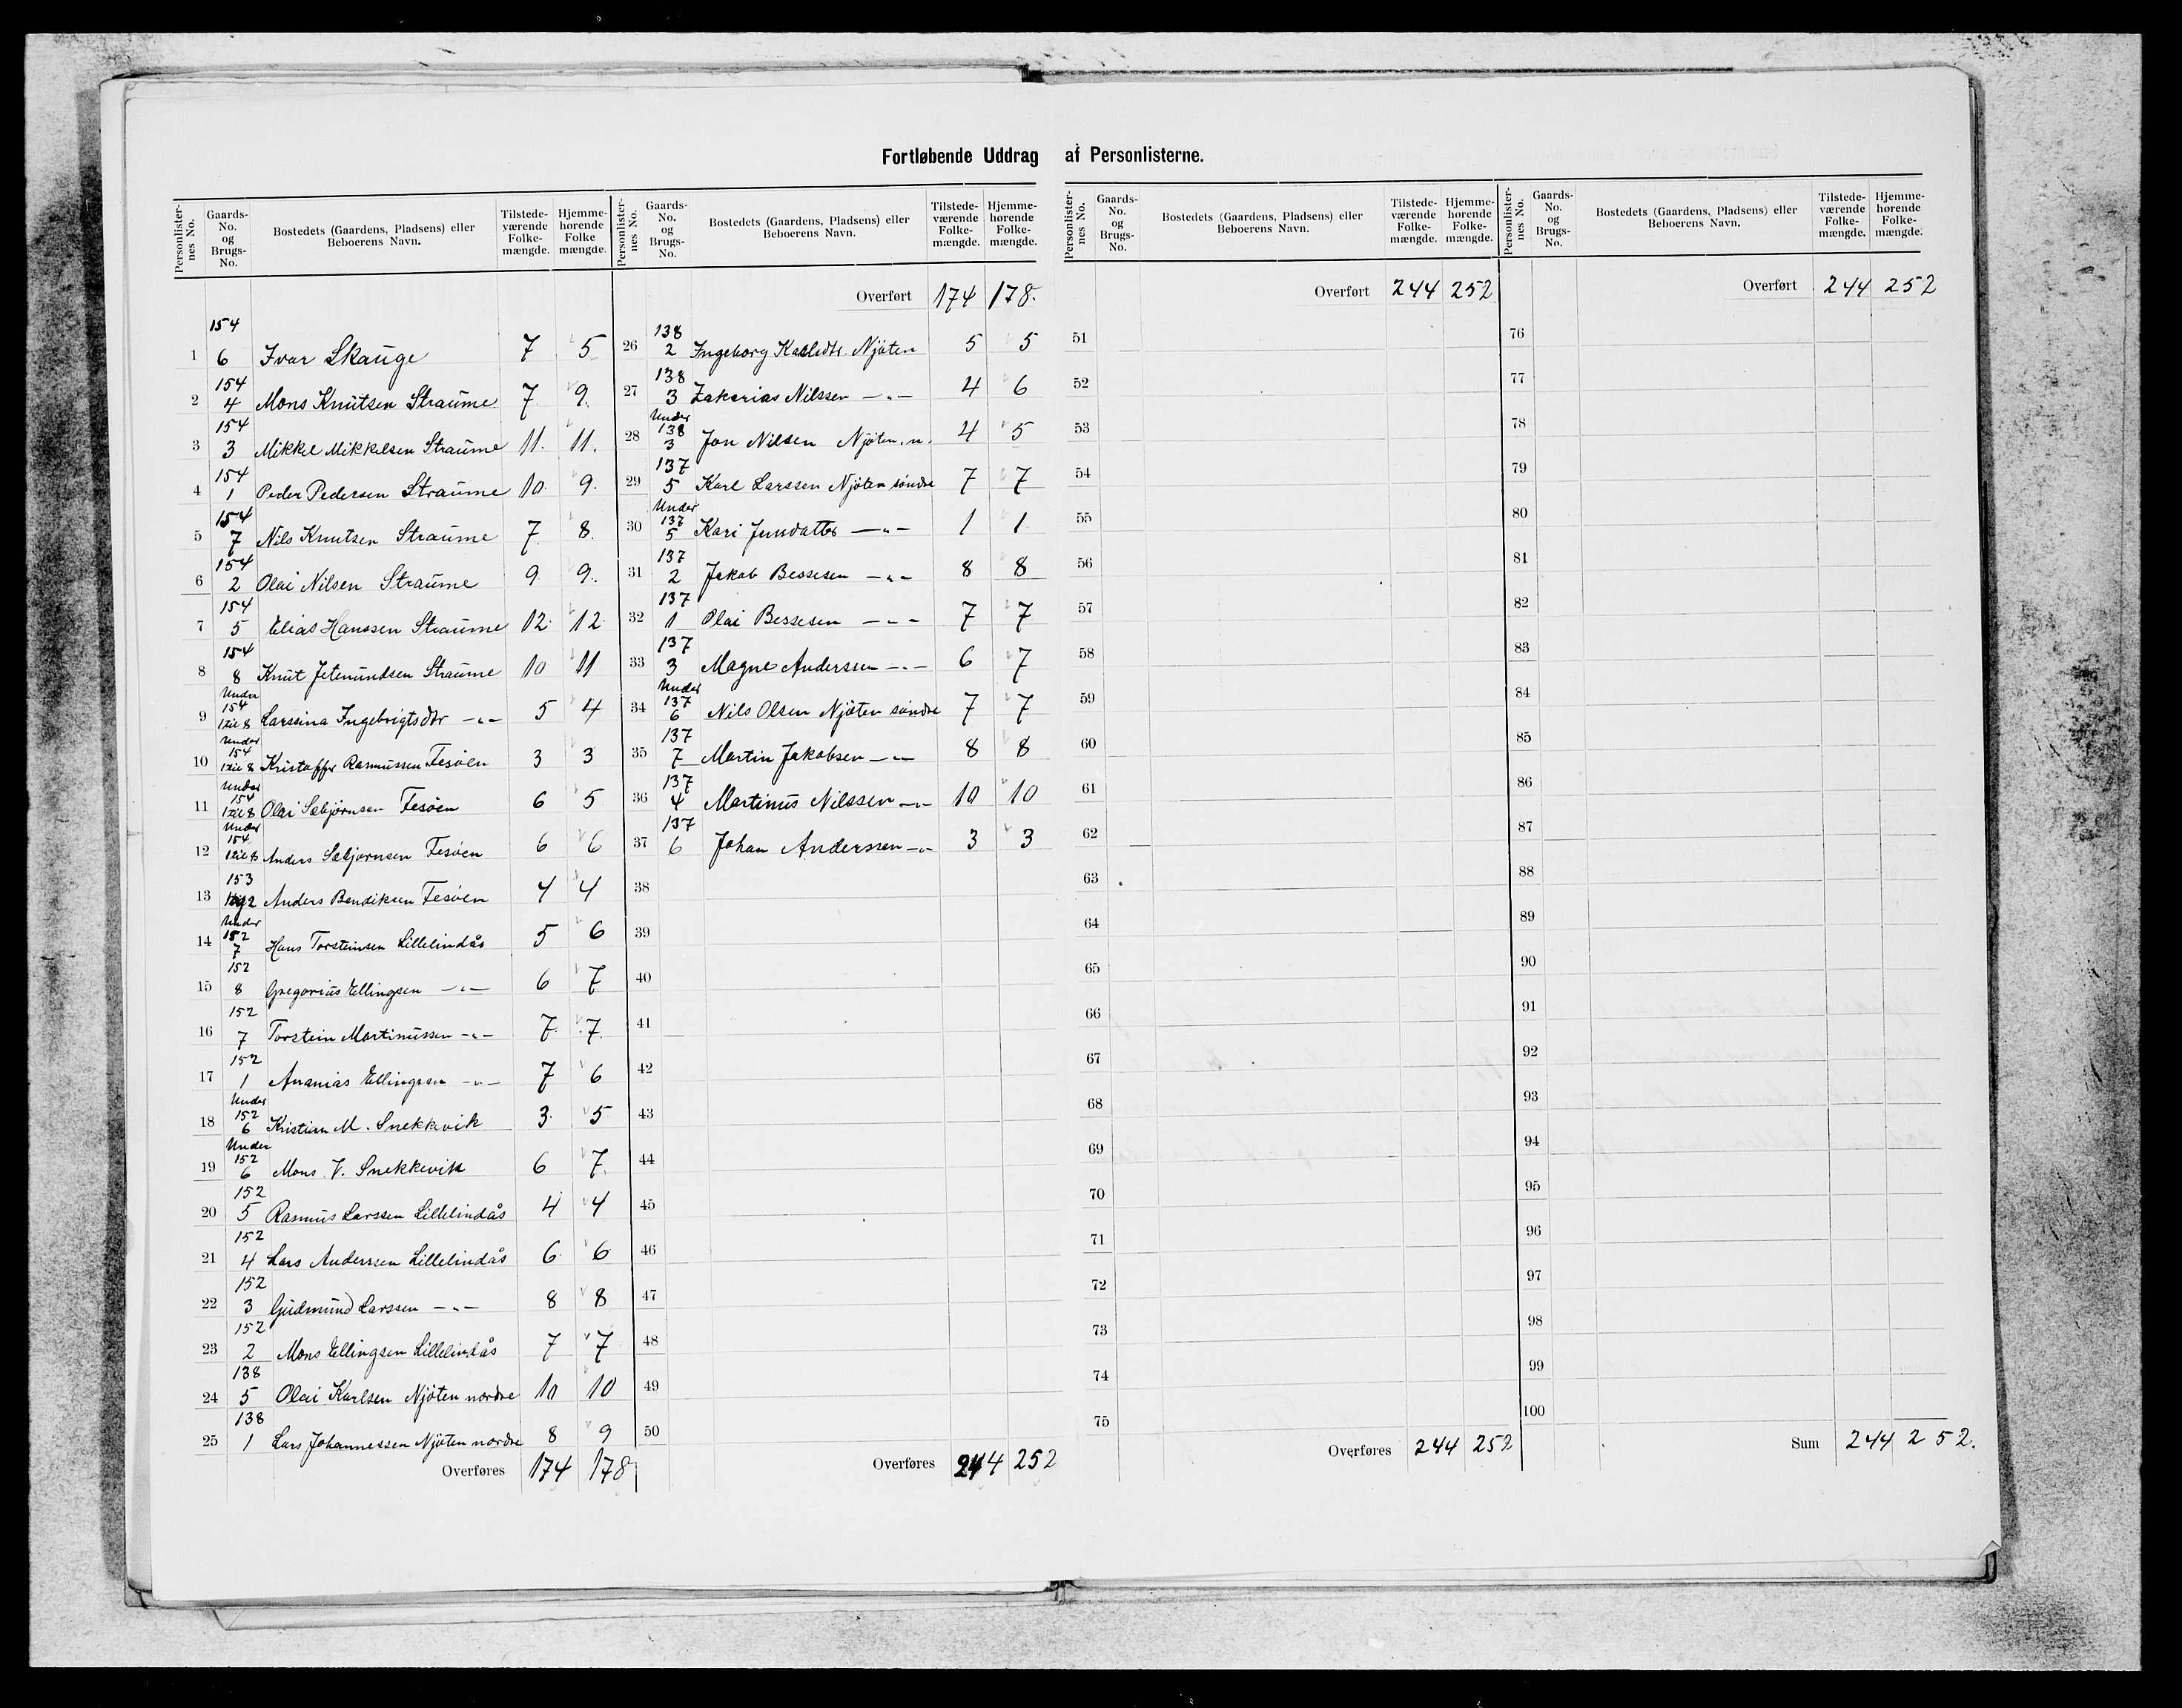 Fortløbende Uddrag af Personlisterne.
Personlisternes No. Gaards-No. og Brugs-No. Bostedets (Gaardens, Pladsens) eller Beboerens Navn. Tilstedeværende Folkemængde. Hjemmehørende Folkemængde.
154
1 6 Ivar Skauge 7 5
154
2 4 Mons Knutsen Straume 7 9.
154
3 3 Mikkel Mikkelsen Straume 11. 11.
154
4 1 Peder Pedersen Straume 10. 9.
154
5 7 Nils Knutsen Straume 7 8.
154
6 2 Olai Nilsen Straume 9 9.
154
7 5 Elias Hanssen Straume 12. 12.
154
8 8 Knut Jetmundsen Straume 10 11
Under
154
9 1 til 8 Larssina Ingebrigtsdtr —"— 5 4
Under
154
10 1 til 8 Kristoffer Rasmussen Fesöen 3 3
Under
154
11 1 til 8 Olai Sæbjørnsen Fesöen 6 5
Under
154
12 1 til 8 Anders Sæbjørnsen Fesöen 6 6
153
13 1 og 2 Anders Bendiksen Fesöen 4 4
Under
152
14 7 Hans Torsteinsen Lillelindås 5 6
152
15 8 Gregorius Ellingsen —"— 6 7
152
16 7 Torstein Martinussen —"— 7 7
152
17 1 Ananias Ellingsen —"— 7 6
Under
152
18 6 Kristian M. Snekkevik 3. 5
Under
152
19 6 Mons V. Snekkevik 6 7.
152
20 5 Rasmus Larssen Lillelindås 4 4
152
21 4 Lars Anderssen Lillelindås 6. 6
152
22 3 Gudmund Larssen —"— 8 8
152
23 2 Mons Ellingsen Lillelindås 7 7
138
24 5 Olai Karlsen Njöten nordre 10 10
138
25 1 Lars Johannessen Njöten nordre 8 9
Overføres 174 178
Personlisternes No. Gaards-No. og Brugs-No. Bostedets (Gaardens, Pladsens) eller Beboerens Navn. Tilstedeværende Folkemængde. Hjemmehørende Folkemængde.
Overført 174 178.
138
26 2 Ingeborg Njöten 5 5
138
27 3 Zakarias Nilssen —"— 4 6
Under
138
28 3 Jon Nilsen Njöten. n. 4 5
137
29 5 Karl Larssen Njöten söndre 7 7
Under
137
30 5 Kari —"— 1 1
137
31 2 Jakob Bessesen —"— 8 8
137
32 1 Olai Bessesen —"— 7 7
137
33 3 Magne Anderssen —"— 6 7
Under
137
34 6 Nils Olsen Njöten söndre 7 7
137
35 7 Martin Jakobsen —"— 8 8
137
36 4 Martinus Nilssen —"— 10 10
137
37 6 Johan Anderssen —"— 3 3
38
39
40
41
42
43
44
45
46
47
48
49
50
Overføres 244 252
Personlisternes No. Gaards-No. og Brugs-No. Bostedets (Gaardens, Pladsens) eller Beboerens Navn. Tilstedeværende Folkemængde. Hjemmehørende Folkemængde.
Overført 244 252
51
52
53
54
55
56
57
58
59
60
61
62
63
64
65
66
67
68
69
70
71
72
73
74
75
Overføres 244 252
Personlisternes No. Gaards-No. og Brugs-No. Bostedets (Gaardens, Pladsens) eller Beboerens Navn. Tilstedeværende Folkemængde. Hjemmehørende Folkemængde.
Overført 244 252
76
77
78
79
80
81
82
83
84
85
86
87
88
89
90
91
92
93
94
95
96
97
98
99
100
Sum 244 252.